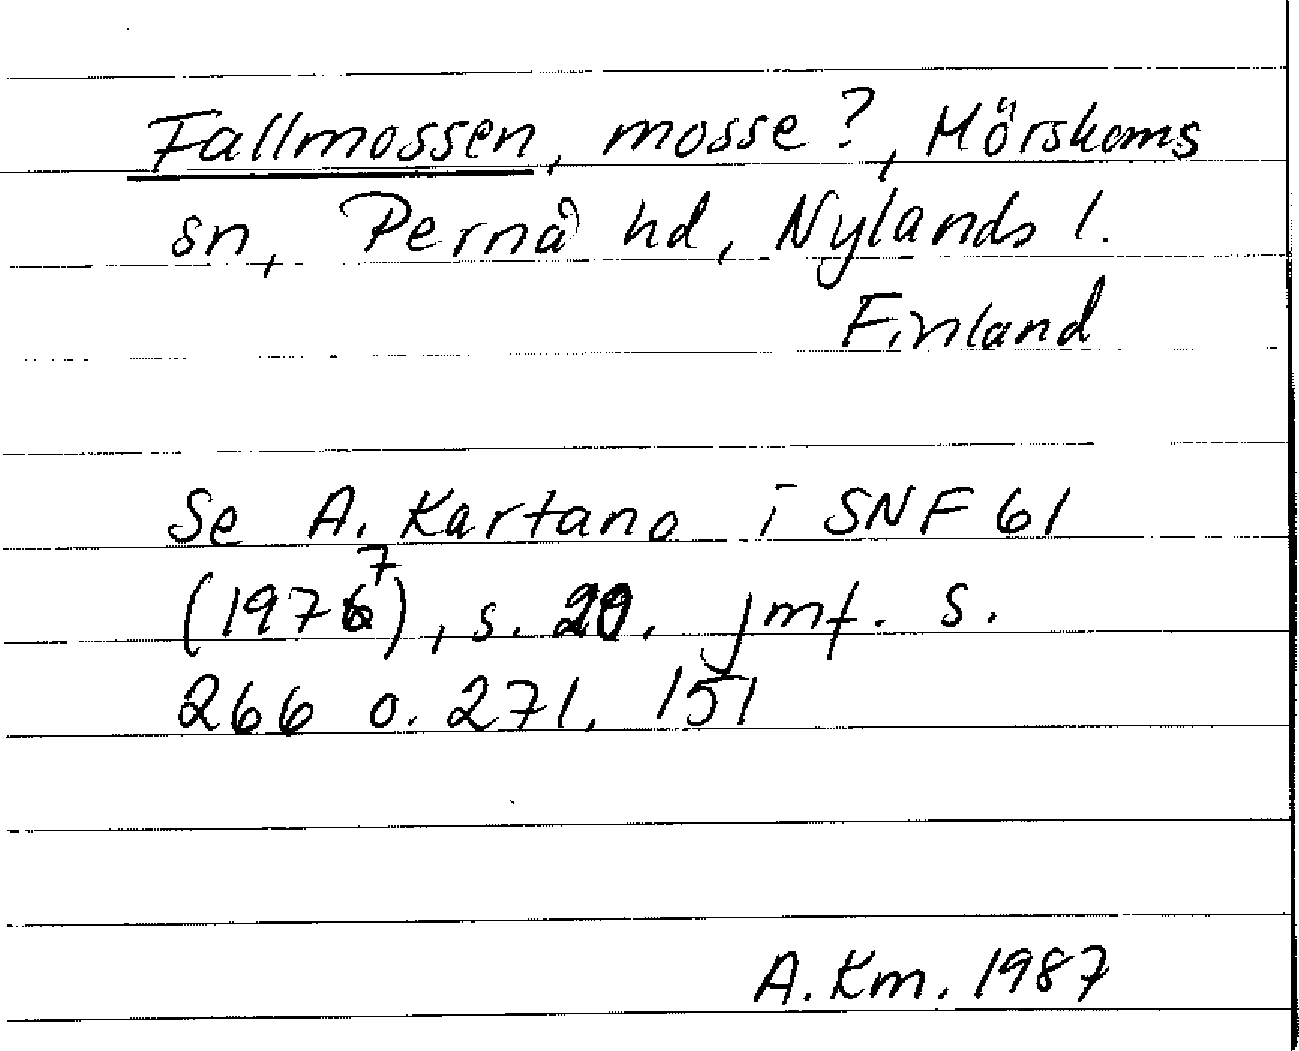 Fallmossen, mosse?, Mörskoms
sn, Pernå hd, Nylands l.
Finland
Se A. Kartano i SNF 61
(1977), s. 29. jmf. s.
266 o. 271, 151
A. Km. 1987